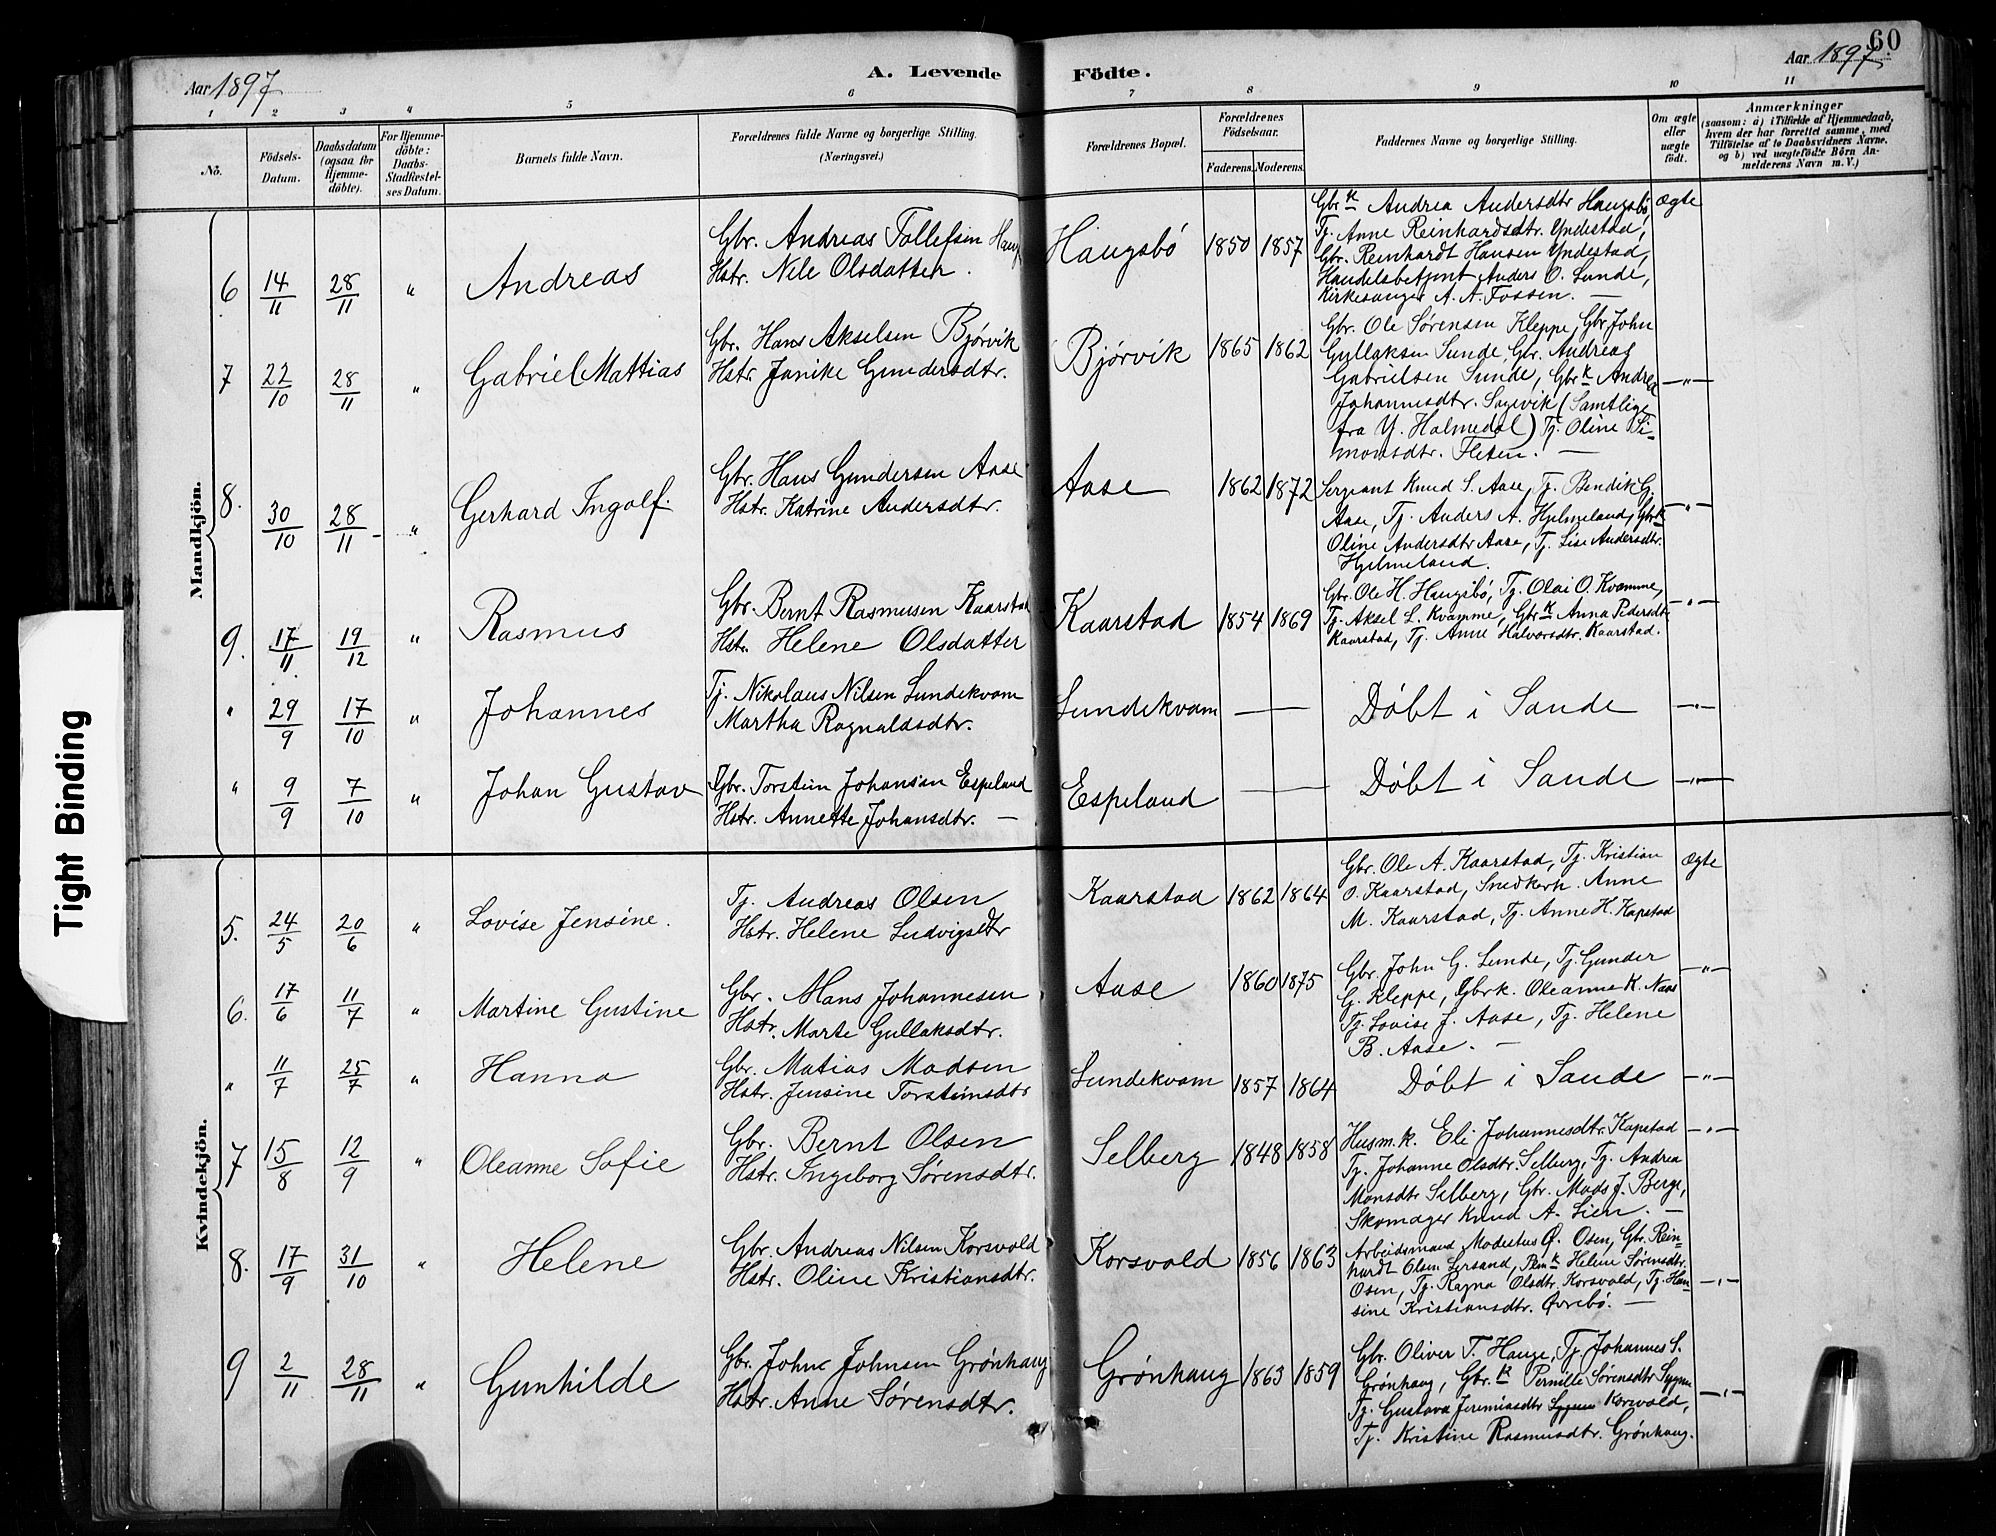 60
Aar 1897
A. Levende Födte.
Aar 1897.
1 2 3 4 5 6 7 8 9 10 11
No.
Födsels-
Datum.
Daabsdatum
(ogsaa for
Hjemme-
döbte).
For Hjemme-
döbte:
Daabs-
Stadfæstel-
ses Datum.
Barnets fulde Navn.
Forældrenes fulde Navne og borgerlige Stilling.
(Næringsvei.)
Forældrenes Bopæl.
Forældrenes
Födselsaar.
Faderens. Moderens.
Faddernes Navne og borgerlige Stilling.
Om ægte
eller
uægte
födt.
Anmærkninger
(saasom: a) i Tilfælde af Hjemmedaab,
hvem der har forrettet samme, med
Tilföielse af to Daabsvidners Navne.
og b) ved uægtefödte Börn An-
melderens Navn m.V.)
Mandkjön.
6 14/11 28/11 " Andreas
Gbr. Andreas Tollefsen Haug
Hstr. Nele Olsdatter.
Haugsbö 1850 1857
Gbr k Andrea Andersdtr Haugsbö,
Tj. Anne Reinhardsdtr. Yndestad,
Gbr. Reinhardt Hansen Yndestad,
Handelsbetjent Anders O. Sunde,
Kirkesanger A. A. Fossen. —
ægte
7 22/10 28/11 " Gabriel Mattias
Gbr. Hans Akselsen Bjørvik
Hstr. Janike Gundersdtr.
Bjørvik 1865 1862
Gbr. Ole Sørensen Kleppe, Gbr. John
Gullaksen Sunde, Gbr. Andreas
Gabrielsen Sunde, Gbr k Andrea
Johannesdtr. Sagevik (Samtlige
fra Y. Holmedal) Tj. Oline Si-
monsdtr. Fleten. —
—"—
8. 30/10 28/11 " Gerhard Ingolf.
Gbr. Hans Gundersen Aase
Hstr. Katrine Andersdtr.
Aase 1862 1872
Sergeant Knud S. Aase, Tj. Bendik G.
Aase, Tj. Anders A. Hjelmeland, Gbr k
Oline Andersdtr Aase, Tj. Lise Andersdtr.
Hjelmeland.
—"—
9. 17/11 19/12 " Rasmus
Gbr. Bernt Rasmusen Kaarstad
Hstr. Helene Olsdatter
Kaarstad 1854 1869
Gbr. Ole H. Haugsbö, Tj. Olai O. Kvamme,
Tj. Aksel L. Kvamme, Gbr k Anna Pedersdtr
Kaarstad, Tj. Anne Halvorsdtr. Kaarstad.
—"—
" 29/9 17/10 " Johannes
Tj. Nikolaus Nilsen Sundekvam
Martha Ragnaldsdtr.
Sundekvam —
Döbt i Sande —"—
" 9/9 7/10 " Johan Gustav
Gbr. Torstein Johansen Espeland
Hstr. Annette Johansdtr. —
Espeland —
Döbt i Sande —"—
Kvindekjön.
5. 24/5 20/6 " Lovise Jensine.
Tj. Andreas Olsen
Hstr. Helene Ludvigsdtr
Kaarstad 1862 1864
Gbr. Ole A. Kaarstad, Tj. Kristian
O. Kaarstad, Snedkerk. Anne
M. Kaarstad, Tj. Anne H. Kapstad
ægte
6. 17/6 11/7 " Martine Gustine
Gbr. Hans Johannesen
Hstr. Marte Gullaksdtr.
Aase 1860 1875
Gbr. John G. Sunde, Tj. Gunder
G. Kleppe, Gbrk. Oleanna K. Næss
Tj. Lovise J. Aase, Tj. Helene
B. Aase. —
—"—
" 11/7 25/7 " Hanna
Gbr. Matias Madsen
Hstr. Jensine Torsteinsdtr
Sundekvam 1857 1864
Döbt i Sande —"—
7 15/8 12/9 " Oleanne Sofie
Gbr. Bernt Olsen
Hstr. Ingeborg Sørensdtr.
Selberg 1848 1858
Husm.k. Eli Johannesdtr. Kapstad
Tj. Johanne Olsdtr. Selberg, Tj. Andrea
Monsdtr Selberg, Gbr. Mads J. Berge,
Skomager Knud A. Lien. —
—"—
8. 17/9 31/10 " Helene
Gbr. Andreas Nilsen Korsvold
Hstr. Oline Kristiansdtr.
Korsvold 1856 1863
Arbeidsmand Modestus O. Osen, Gbr. Rein-
hardt Olsen Lersand, Helene Sørensdtr.
Osen, Tj. Ragna Olsdtr. Korsvold, Tj. Han-
sine Kristiansdtr. Øvrebö. —
—"—
9 2/11 28/11 " Gunhilde
Gbr. John Johnsen Grönhaug
Hstr. Anne Sørensdtr.
Grönhaug 1863 1859
Gbr. Oliver T. Hauge, Tj. Johannes S.
Grönhaug, Gbr. k Pernille Sørensdtr Sygna
Tj. Gustava Jeremiasdtr Korsvold,
Tj. Kristine Rasmusdtr. Grönhaug.
—"—
Tight Binding